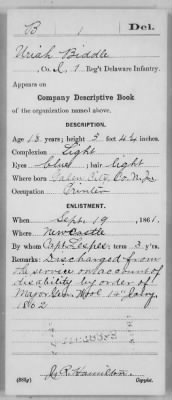 B 1 Del.
Uriah Biddle
, Co. I, 1 Reg't Delaware Infantry.
Appears on
Company Descriptive Book
of the organization named above.
DESCRIPTION.
Age 18 years; height 5 feet 4¼ inches.
Complexion Light
Eyes blue; hair light
Where born Salem City, Co. N. Jer
Occupation Printer
ENLISTMENT.
When Sept. 19, 1861.
Where Newcastle
By whom Capt. ; term 3 y'rs.
Remarks: Discharged from
the service on account of
disability by order of
Major Gen. Wool 14" Jany
1862
J. R. Hamilton
(383g) Copyist.